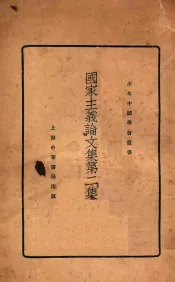 少年中國學會叢書
國家主義論文集第二集
上海中華書局印行